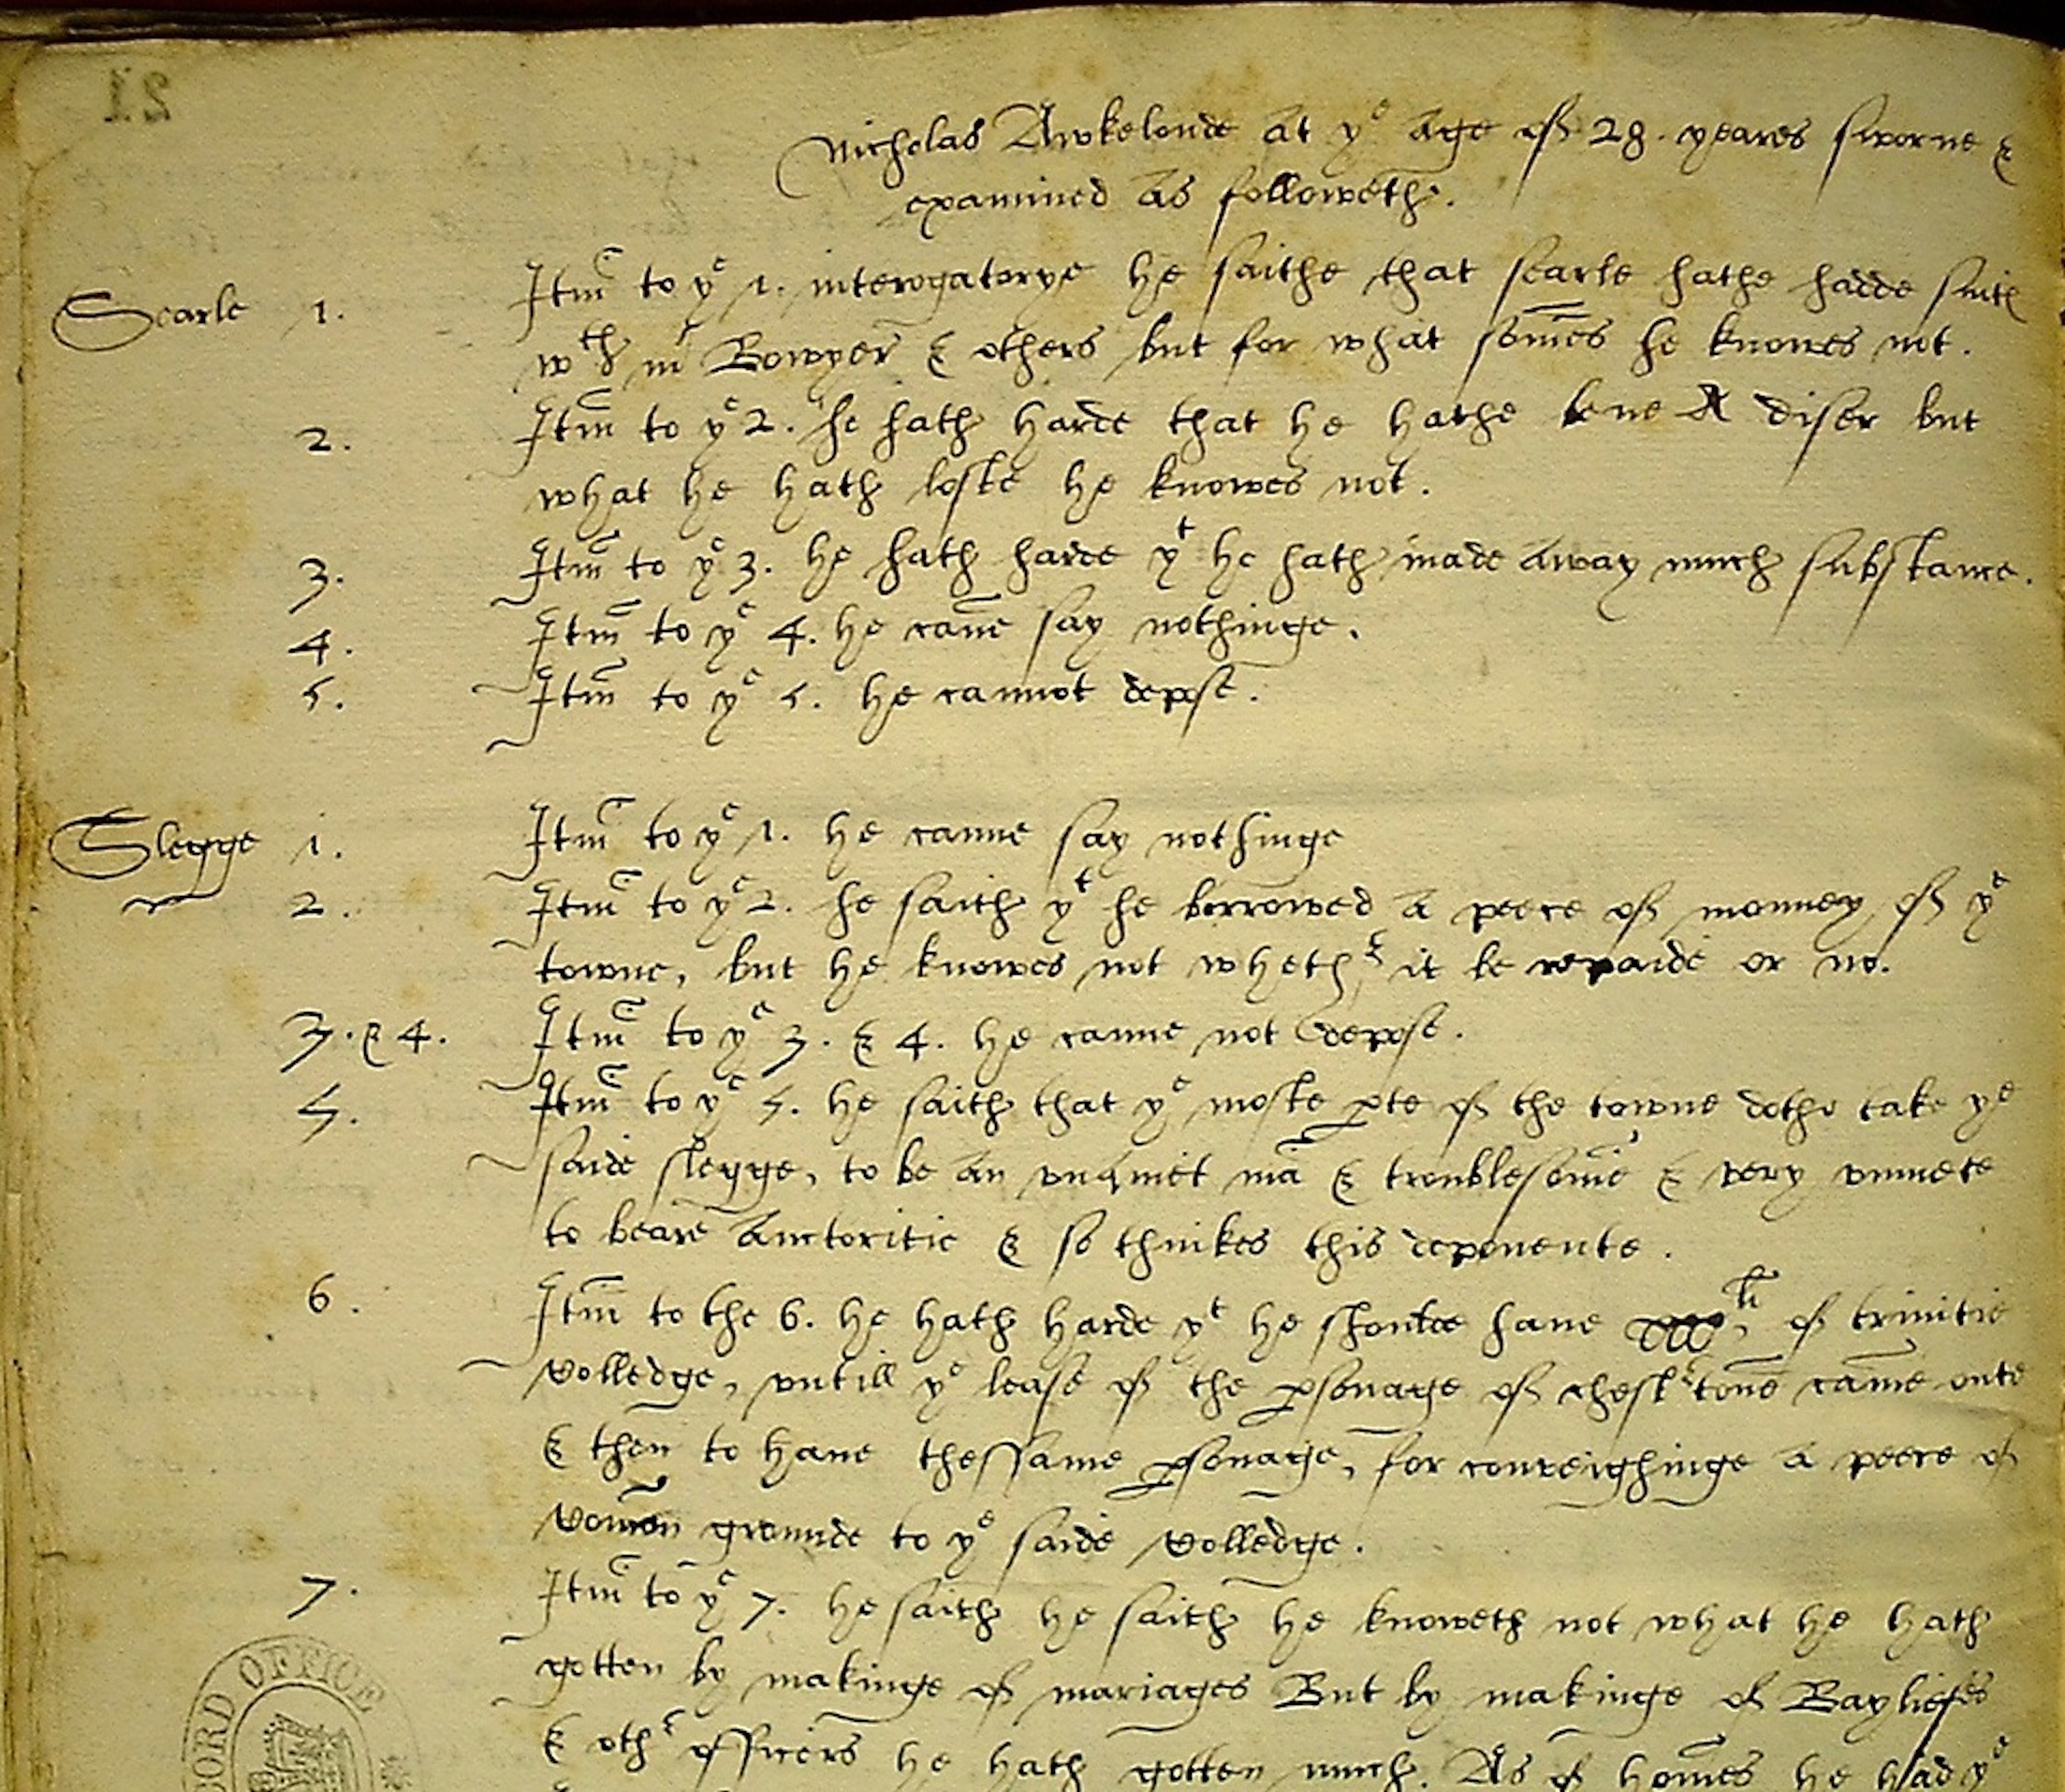 21
Nicholas Awkelonde at yᵉ age of 28. yeares sworne &
examined as followeth.
Searle 1. Itm̃ to yᵉ 1. interogatorye he saithe that searle hathe hadde suite
wᵗʰ mʳ Bowyer & others but for what som̃es he knowes not.
2. Itm̃ to yᵉ 2. he hath harde that he hathe bene A diser but
what he hath loste he knowes not.
3. Itm̃ to yᵉ 3. he hath harde yᵗ he hath made away much substance.
4. Itm̃ to yᵉ 4. he cañe say nothinge.
5. Itm̃ to yᵉ 5. he cannot depose.
Slegge 1. Itm̃ to yᵉ 1. he canne say nothinge
2. Itm̃ to yᵉ 2. he saith yᵗ he borrowed a peece of monney of yᵉ
towne, but he knowes not whethʳ it be repaide or no.
3. & 4. Itm̃ to yᵉ 3. & 4. he canne not depose.
5. Itm̃ to yᵉ 5. he saith that yᵉ moste ꝑte of the towne dothe take yᵉ
saide slegge, to be an vnquiet mã & troublesom̃e & very vnmete
to beare auctoritie & so thinkes this deponente.
6. Itm̃ to the 6. he hath harde yᵗ he shoulde haue xxxˡⁱ, of trinitie
Colledge, vntill yᵉ lease of the ꝑsonage of chestʳtoñe cam̃e oute
& then to haue thessame ꝑsonage, for conveighinge a peece of
Com̃on grounde to yᵉ saide Colledge.
7. Itm̃ to yᵉ 7. he saith he saith he knoweth not what he hath
gotten by makinge of mariages But by makinge of Bayliefes
& othʳ officers he hath gotten much. As of hom̃es he had yᵉ
CORD OFFICE